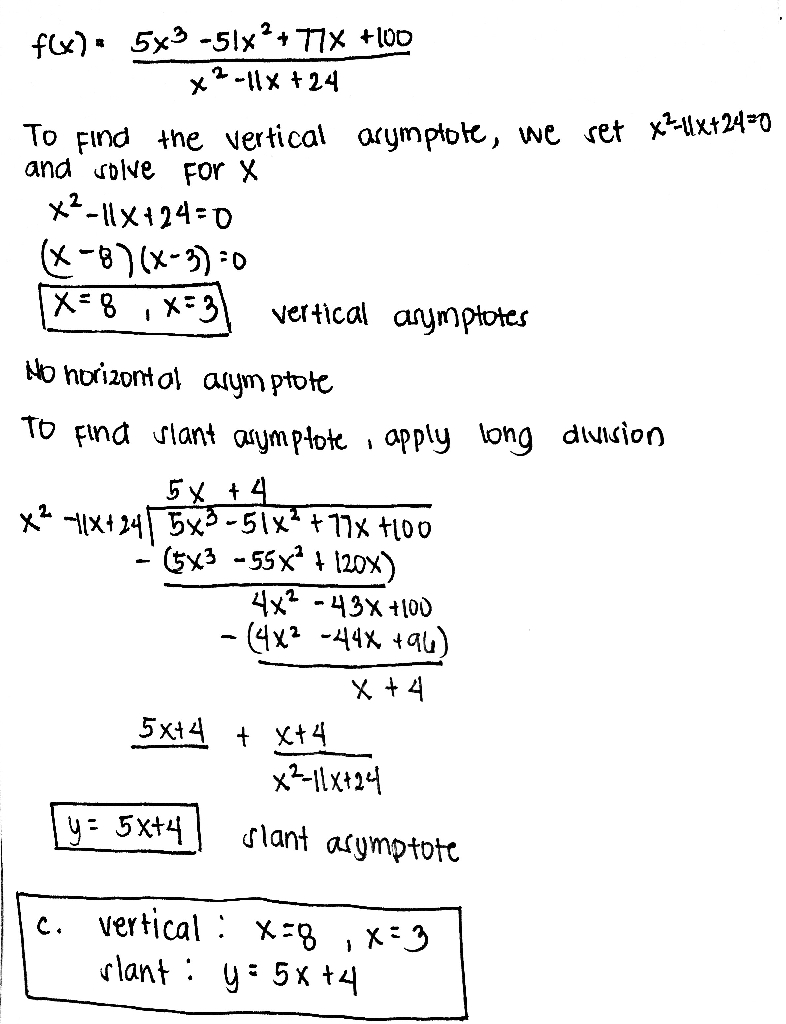 f(x) = 5x³ - 51x² + 77x + 100
x² - 11x + 24
To find the vertical asymptote, we set x² - 11x + 24 = 0
and solve for x
x² - 11x + 24 = 0
(x - 8)(x - 3) = 0
x = 8 , x = 3 vertical asymptotes
No horizontal asymptote
To find slant asymptote , apply long division
5x + 4
x² - 11x + 24 5x³ - 51x² + 77x + 100
- (5x³ - 55x² + 120x)
4x² - 43x + 100
- (4x² - 44x + 96)
x + 4
5x+4 + x+4
x² - 11x + 24
y = 5x+4 slant asymptote
c. vertical : x = 8 , x = 3
slant : y = 5x + 4